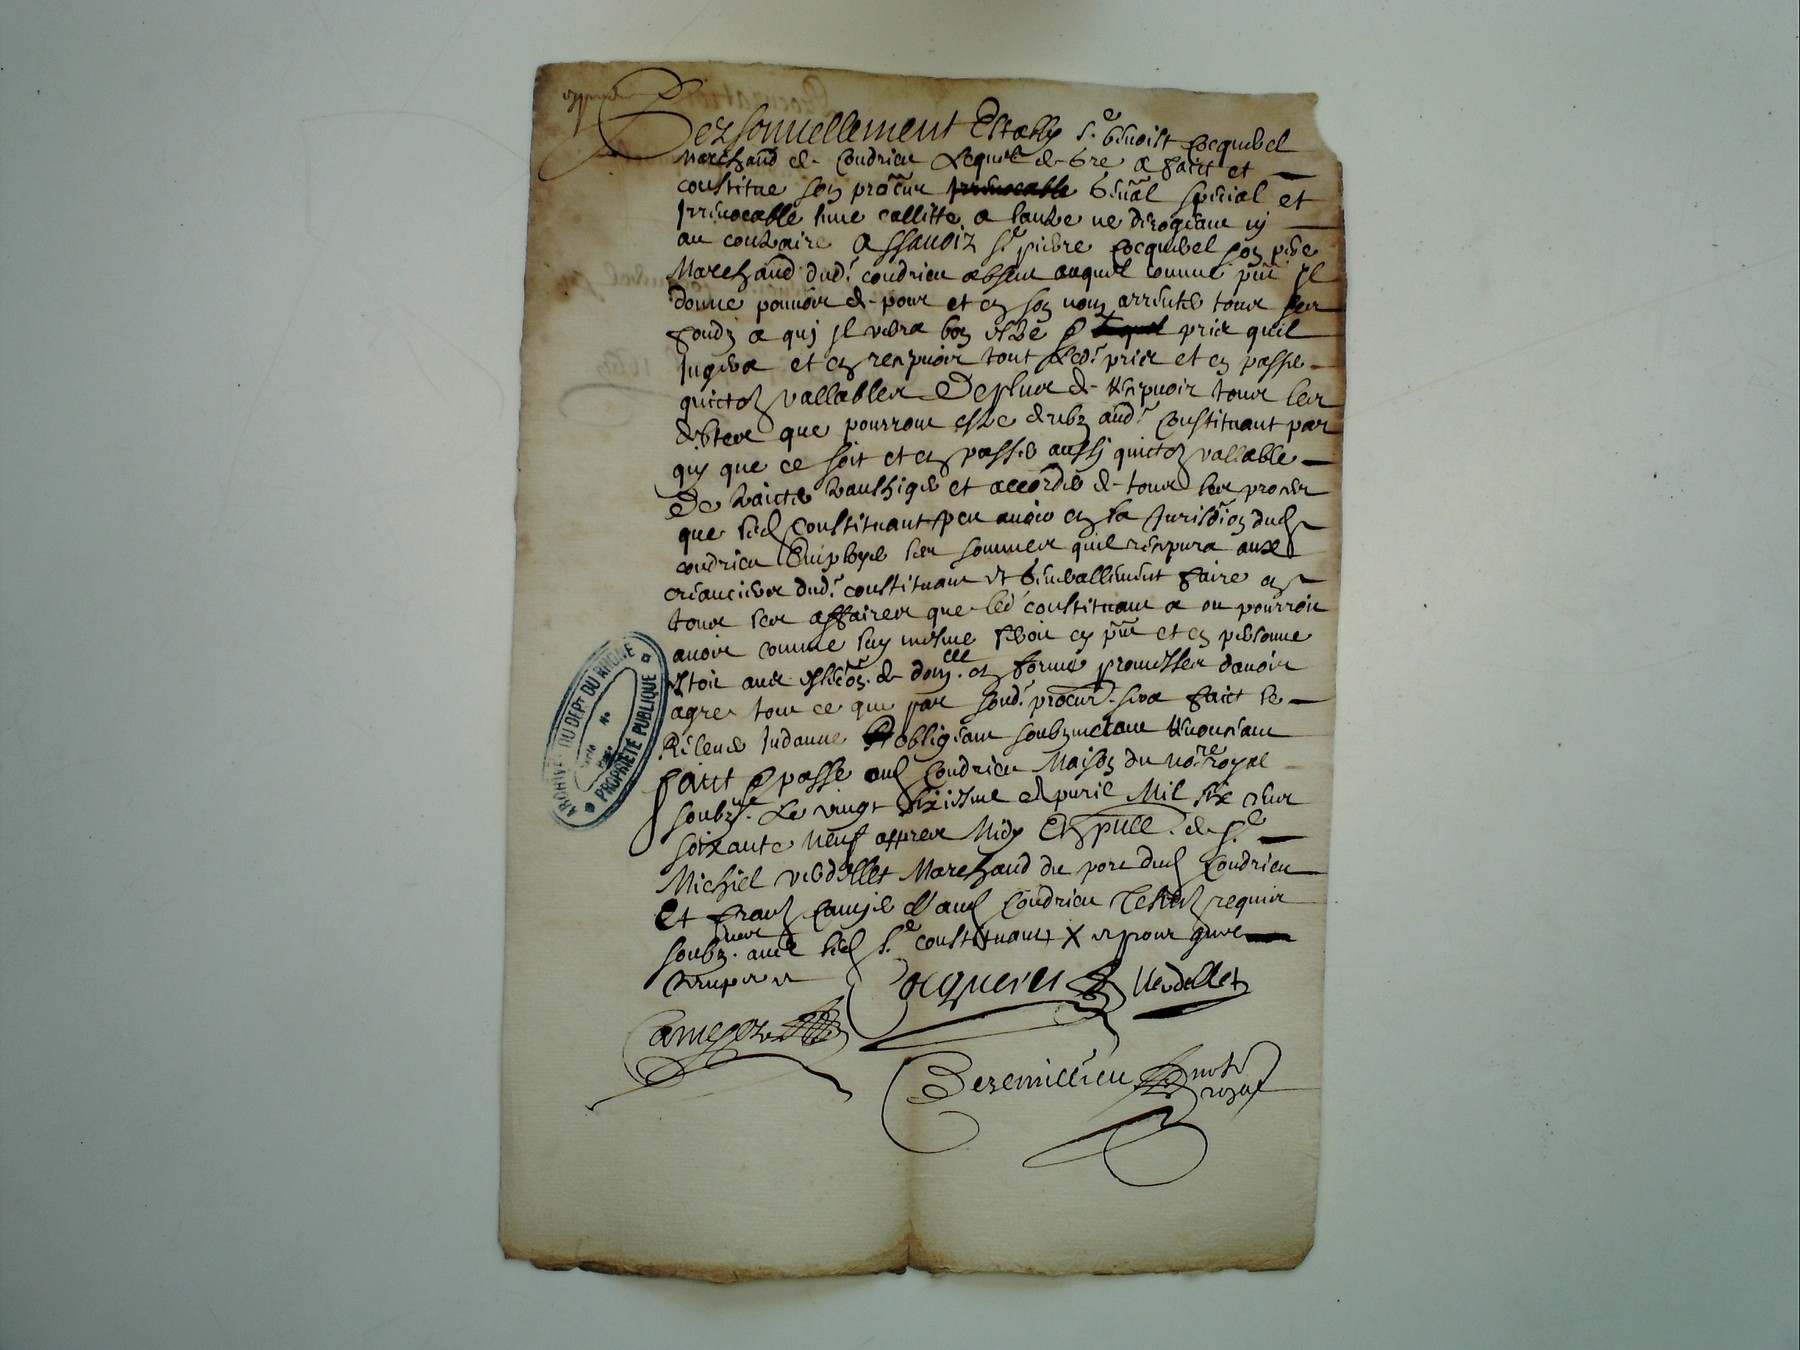 Personnellement Estably s.r benoist Cocquerel
Marchand de Condrieu Lequel de gre a faict et
constitue son procur irrevocable genal special et
Irrevocable lune callitte a lautre ne derogeant ny
au contraire Assavoir s.r pierre Cocquerel son pere
Marchand dud.t condrieu absent auquel comme pnt Il
donne pouvoir de pour et en son nom arrenter tous ses
fondz a quj Il verra bon estre & prix quil
Jugera et en recepvoir tout Led.t prix et en passer
quictces vallables De plus de recepvoir tous les
debtes que pourront estre deubz aud.t Constituant par
quy que ce soit et en passer aussj quictces vallable
De traicter transhiger et accorder de tous les proces
que led Constituant peu avoir en la Jurisdion dud
condrieu Employer les sommes quil recepvra aux
creanciers dud.t constituant et generallement faire en
tous ses affaires que led constituant a ou pourroit
avoir comme luy mesme feroit cy pnt et en personne
estoit avec eslection de domcille en forme promesses davoir
agree tout ce que par sond.t procur sera faict le
Relever Indamne obligeant soubzmetant Renonceant
faict & passe aud Condrieu Maison du no.re royal
soubz.ne Le vingt sixiesme dapvril Mil six cens
soixante neuf appres Midy En pnce de s.r
Michel verdellet Marchand du port dud Condrieu
Et francs Camejer daud Condrieu requis
soubz.nes avec led s.r constituant X
Cocquerel Verdellet
Camejer
Deremillieu not.re
royal
ARCHIVES DU DEPT DU RHONE
PROPRIÉTÉ PUBLIQUE